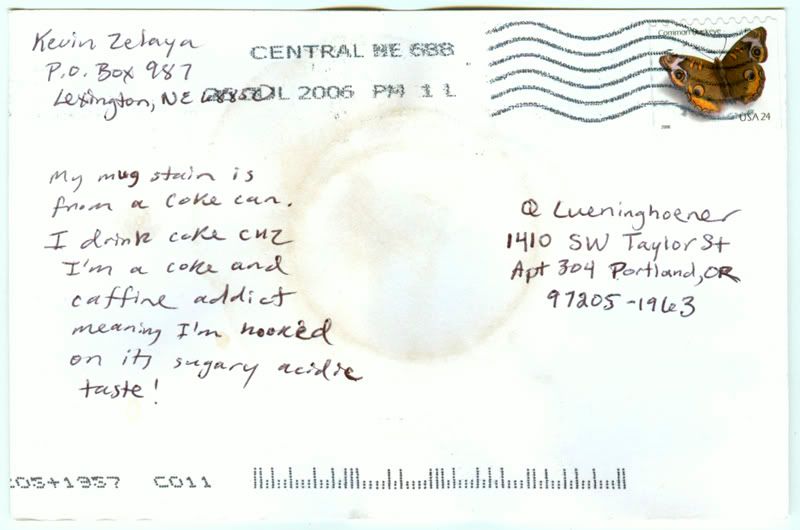 Kevin Zelaya
P.O. Box 987
Lexington, NE 68850
CENTRAL NE 688
JUL 2006 PM 1 L
Common Buckeye
USA 24
2006
My mug stain is
from a coke can.
I drink coke cuz
I'm a coke and
caffine addict
meaning I'm hooked
on its sugary acidic
taste!
Q Lueninghoener
1410 SW Taylor St
Apt 304 Portland, OR
97205-1963
205+1957 C011